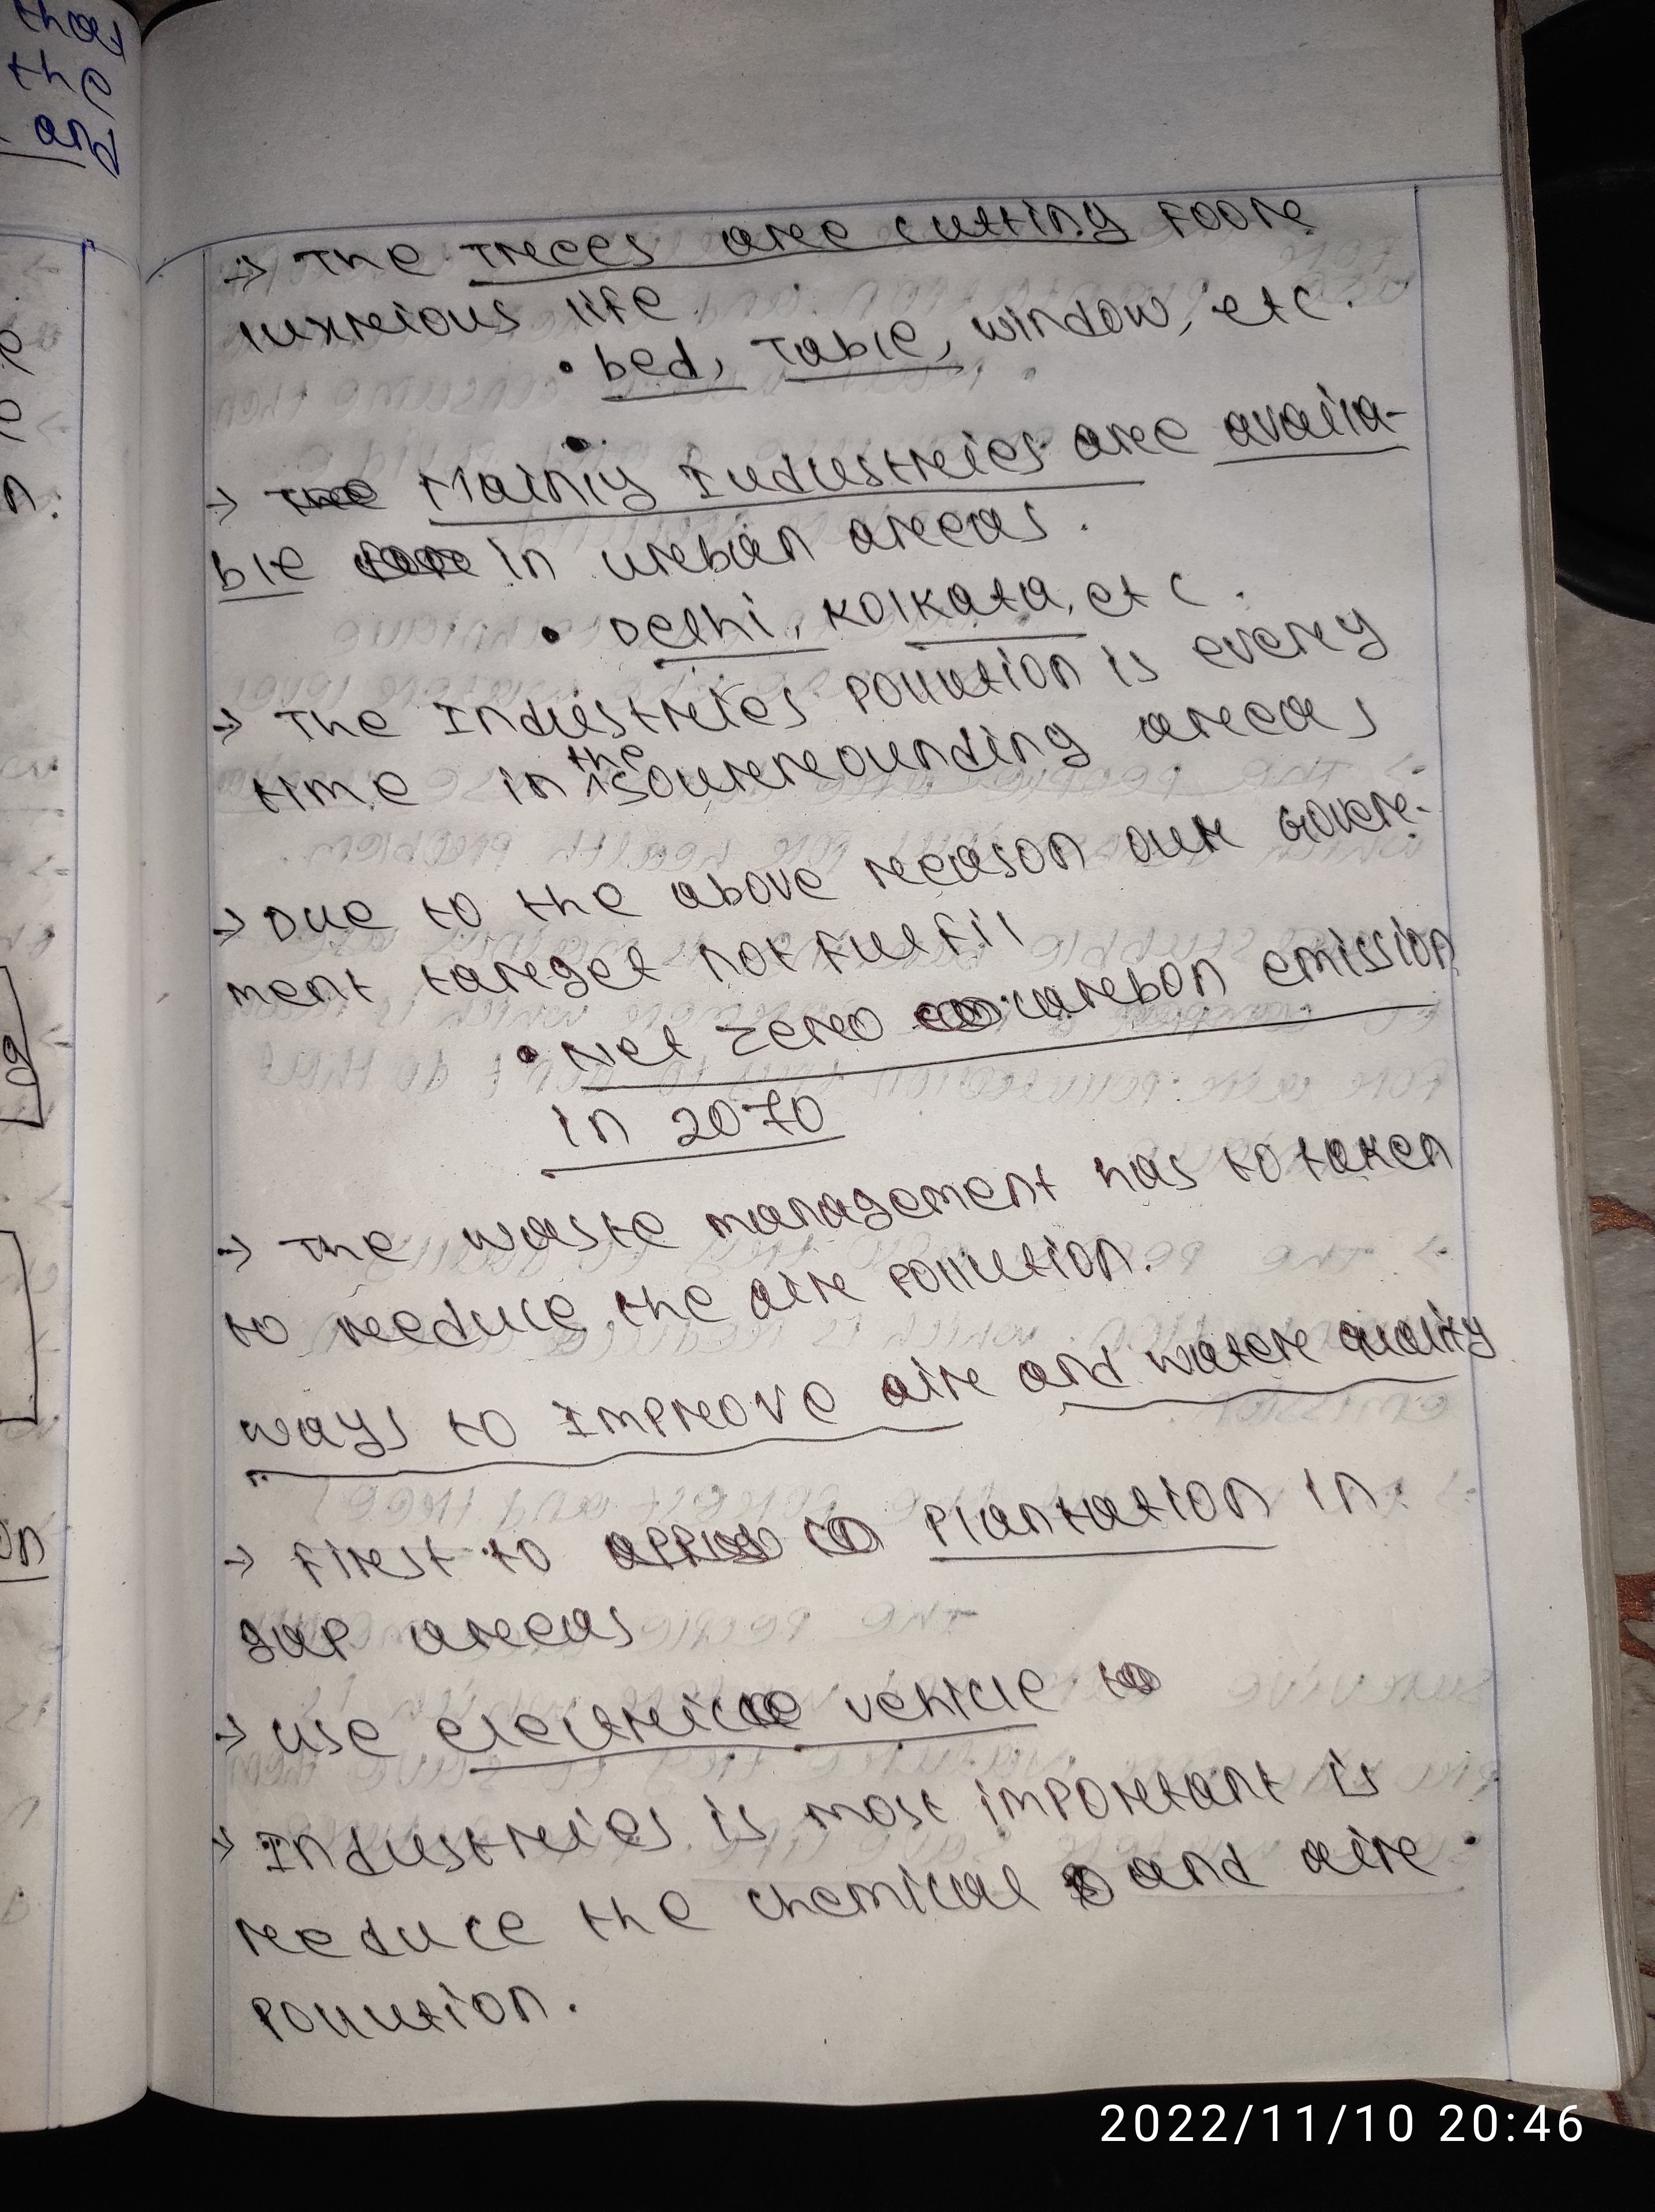 that
the
and
→ The Trees are cutting foor
luxrious life.
• bed, Table, window, etc.
→ Mainly Industries are availa-
ble in urban areas.
• Delhi, Kolkata, etc.
→ The Industries pollution is every
time in the sourrounding areas
→ Due to the above reason our Gover-
ment target not fulfil
• Net zero carbon emission
in 2070
→ The waste management has to taken
to reduce the air pollution.
ways to Improve air and water quality
→ first to Plantation in
gap areas
→ use electric vehicle to
→ Industries is most important is
reduce the chemical and air
pollution.
2022/11/10 20:46